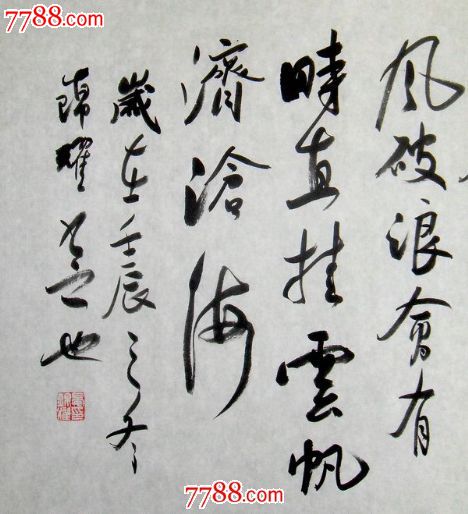 7788.com
风破浪會有
時直挂雲帆
濟滄海
歲在壬辰之冬
錦耀書也
7788.com
7788.com